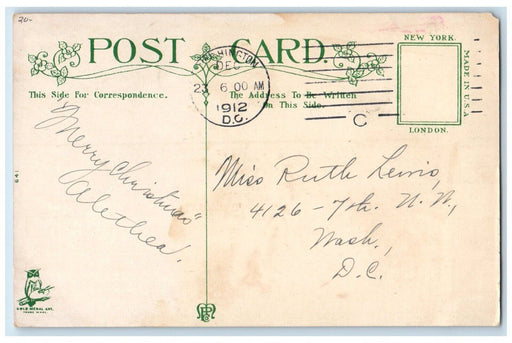 20-
POST CARD.
NEW YORK.
MADE IN U.S.A.
LONDON.
This Side For Correspondence.
The Address To Be Written
On This Side.
WASHINGTON
DEC
23 6 00 AM
1912
D.C.
C
"Merry Christmas"
Alethea.
Miss Ruth Lewis,
4126 - 7th. N.W.,
Wash.,
D.C.
641
GOLD MEDAL ART.
TRADE MARK.